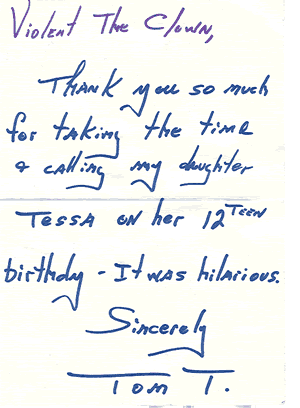 Violent The Clown,
Thank you so much
for taking the time
& calling my daughter
Tessa on her 12TEEN
birthday - It was hilarious.
Sincerely
Tom T.